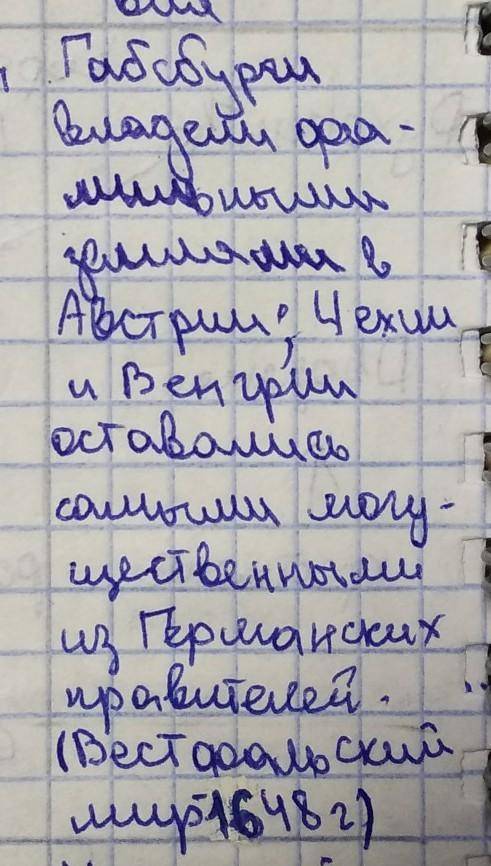 Габсбурги
владели фа-
мильными
землями в
Австрии, Чехии
и Венгрии
оставались
самыми могу-
щественными
из Германских
правителей.
(Вестфальский
мир 1648 г)